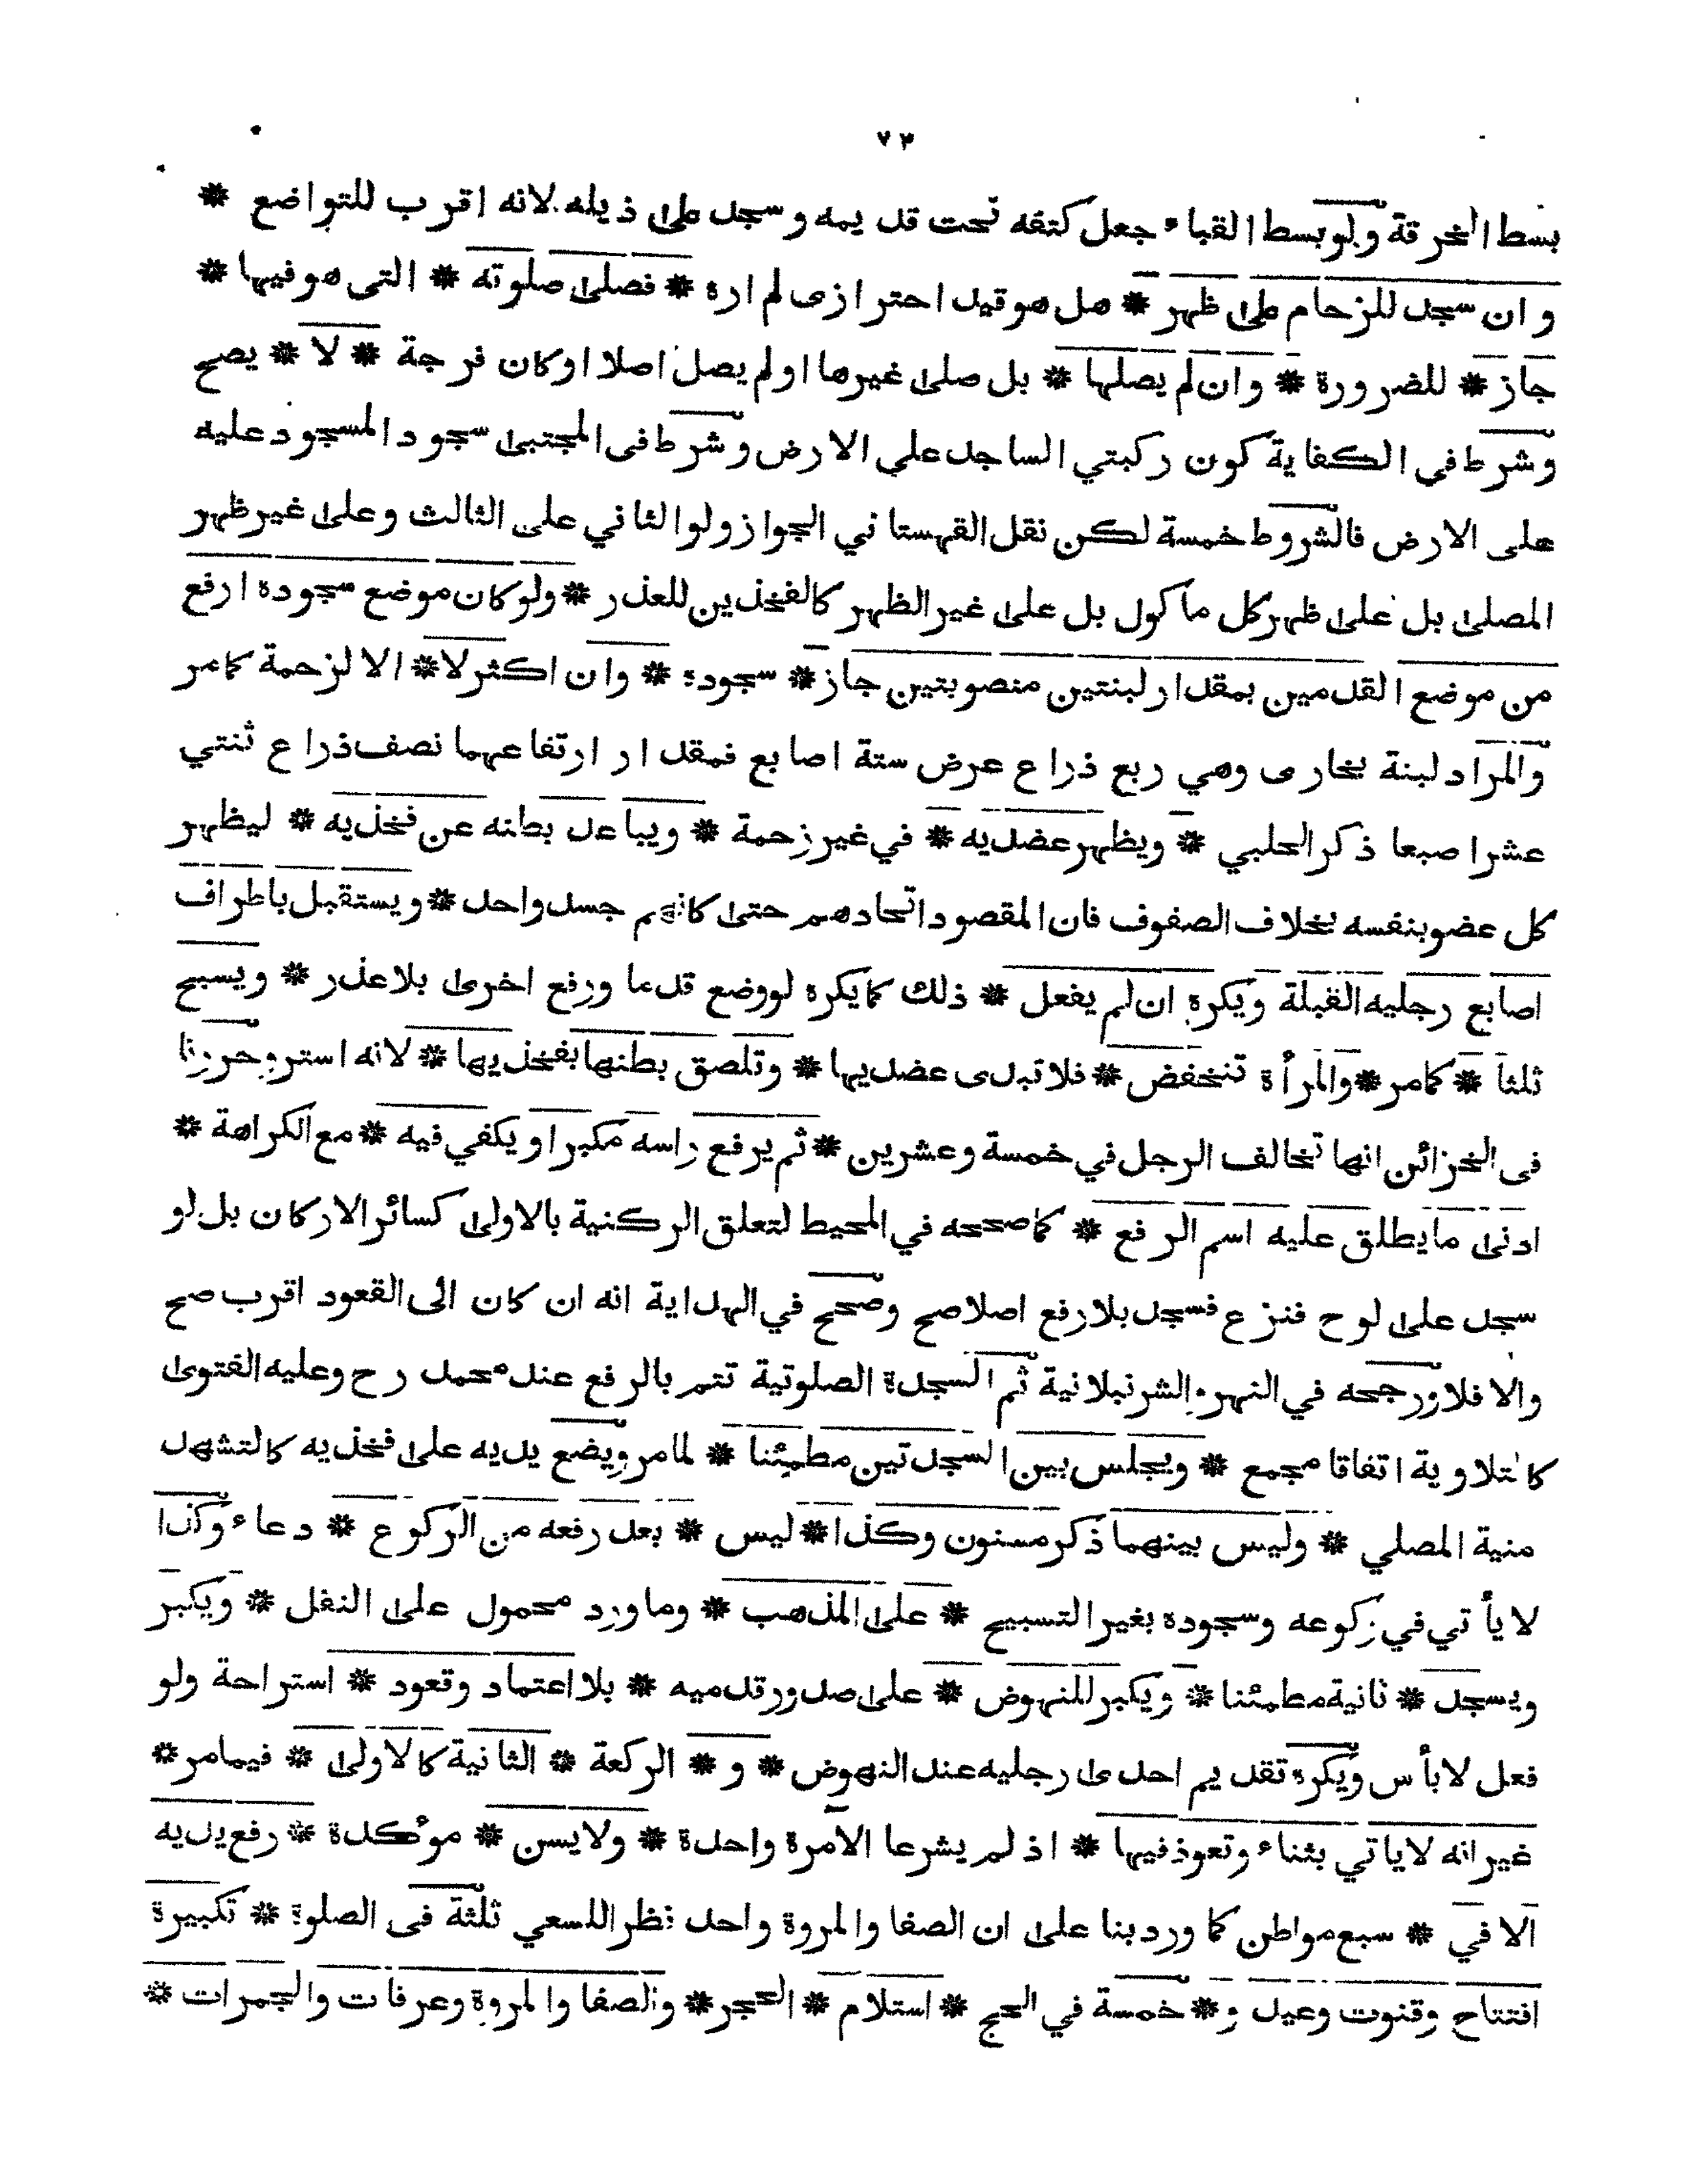 ٧٣
بسط الخرقة ولو بسط القباء جعل كتفه تحت قدميه وسجد على ذيله لانه اقرب للتواضع *
وان سجد للزحام على ظهر * هل هو قيد احترازى لم اره * فصلى صلوته * التى هو فيها *
جاز * للضرورة * وان لم يصلها * بل صلى غيرها او لم يصل اصلا او كان فرجة * لا * يصح
وشرط في الكفاية كون ركبتي الساجد على الارض وشرط فى المجتبى سجود المسجود عليه
على الارض فالشروط خمسة لكن نقل القهستاني الجواز ولو الثاني على الثالث وعلى غير ظهر
المصلى بل على ظهر كل مأكول بل على غير الظهر كالفخذين للعذر * ولو كان موضع سجوده ارفع
من موضع القدمين بمقدار لبنتين منصوبتين جاز * سجوده * وان اكثر لا * الا لزحمة كما مر
والمراد لبنة بخارى وهي ربع ذراع عرض ستة اصابع فمقدار ارتفاعهما نصف ذراع ثنتي
عشر اصبعا ذكر الحلبي * ويظهر عضديه * في غير زحمة * ويباعد بطنه عن فخذيه * ليظهر
كل عضو بنفسه بخلاف الصفوف فان المقصود اتحادهم حتى كانهم جسد واحد * ويستقبل باطراف
اصابع رجليه القبلة ويكره ان لم يفعل * ذلك كما يكره لو وضع قدما ورفع اخرى بلا عذر * ويسبح
ثلثا * كما مر * والمرأة تنخفض * فلا تبدى عضديها * وتلصق بطنها بفخذيها * لانه استر وحررنا
فى الخزائن انها تخالف الرجل في خمسة وعشرين * ثم يرفع راسه مكبرا ويكفي فيه * مع الكراهة *
ادنى ما يطلق عليه اسم الرفع * كما صححه في المحيط لتعلق الركنية بالاولى كسائر الاركان بل لو
سجد على لوح فنزع فسجد بلا رفع اصلا صح وصحح في الهداية انه ان كان الى القعود اقرب صح
والا فلا ورجحه في النهر والشرنبلانية ثم السجدة الصلوتية تتم بالرفع عند محمد رح وعليه الفتوى
كالتلاوية اتفاقا مجمع * ويجلس بين السجدتين مطمئنا * لما مر ويضع يديه على فخذيه كالتشهد
منية المصلي * وليس بينهما ذكر مسنون وكذا * ليس * بعد رفعه من الركوع * دعاء وكذا
لا يأتي في ركوعه وسجوده بغير التسبيح * على المذهب * وما ورد محمول على النفل * ويكبر
ويسجد * ثانية مطمئنا * ويكبر للنهوض * على صدور قدميه * بلا اعتماد وقعود * استراحة ولو
فعل لا بأس ويكره تقديم احدى رجليه عند النهوض * و * الركعة * الثانية كالاولى * فيما مر *
غير انه لا ياتي بثناء وتعوذ فيها * اذ لم يشرعا الامرة واحدة * ولا يسن * مؤكدة * رفع يديه
الا في * سبع مواطن كما ورد بنا على ان الصفا والمروة واحد نظرا للسعي ثلثة فى الصلوة * تكبيرة
افتتاح وقنوت وعيد و * خمسة في الحج * استلام * الحجر * والصفا والمروة وعرفات والجمرات *